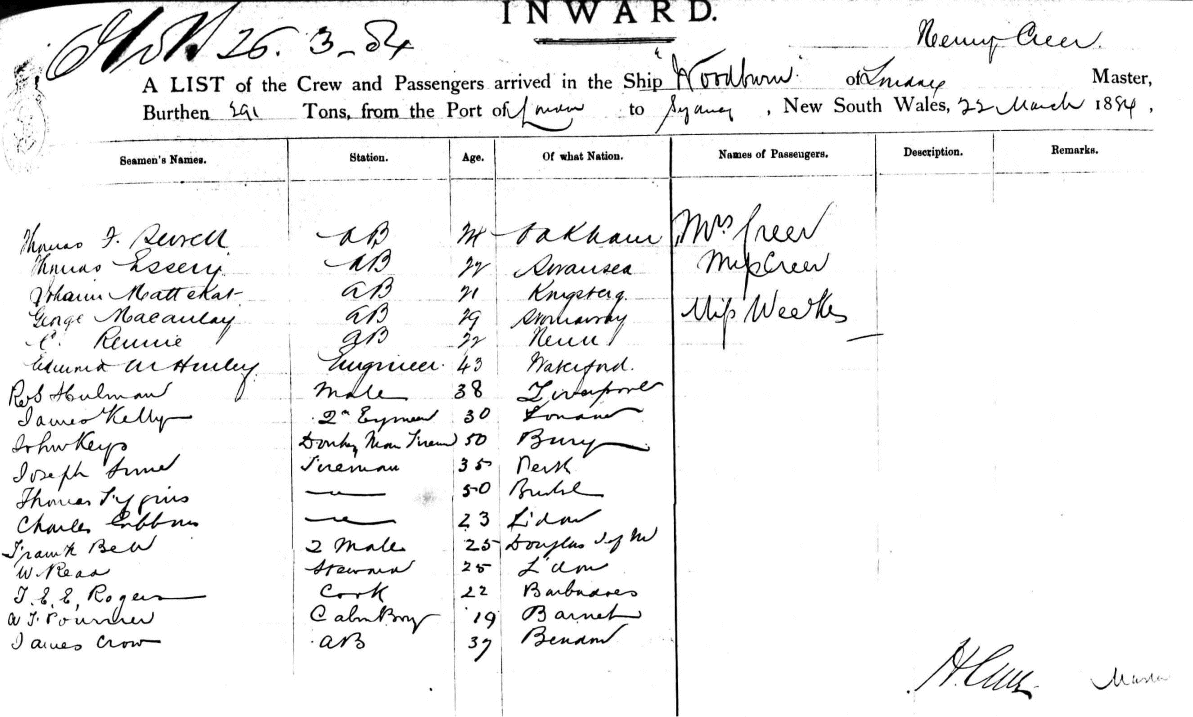 INWARD.
26. 3-84
Henry Creer.
A LIST of the Crew and Passengers arrived in the Ship "Woodburn" of Master,
Burthen 291 Tons, from the Port of to Sydney, New South Wales, 22 March 1884,
Seamen's Names. Station. Age. Of what Nation. Names of Passengers. Description. Remarks.
Thomas F. Sewell AB Oakham Mrs Creer
Thomas Essery AB 22 Swansea Miss Creer
Johann Mattekat AB 21 Kngsberg.
George Macaulay AB 29 Stornaway Miss Weekes
C. Rennie AB 22
Edward Hurley Engineer. 43 Waterford.
Robt Hulman Mate 38 Liverpool
James Kelly 2n 30
John Keys Donkey Man 50 Bury
Joseph Fireman 35
Thomas 50
Charles Gibbons 23 L'don
Frank Bell 2 Mate 25 Douglas I of M
W. Read Steward 25 L'don
T. E. E. Rogers Cook 22 Barbadoes
A F Cabin Boy 19 Barnet
James Crow AB 37
H. Creer Master